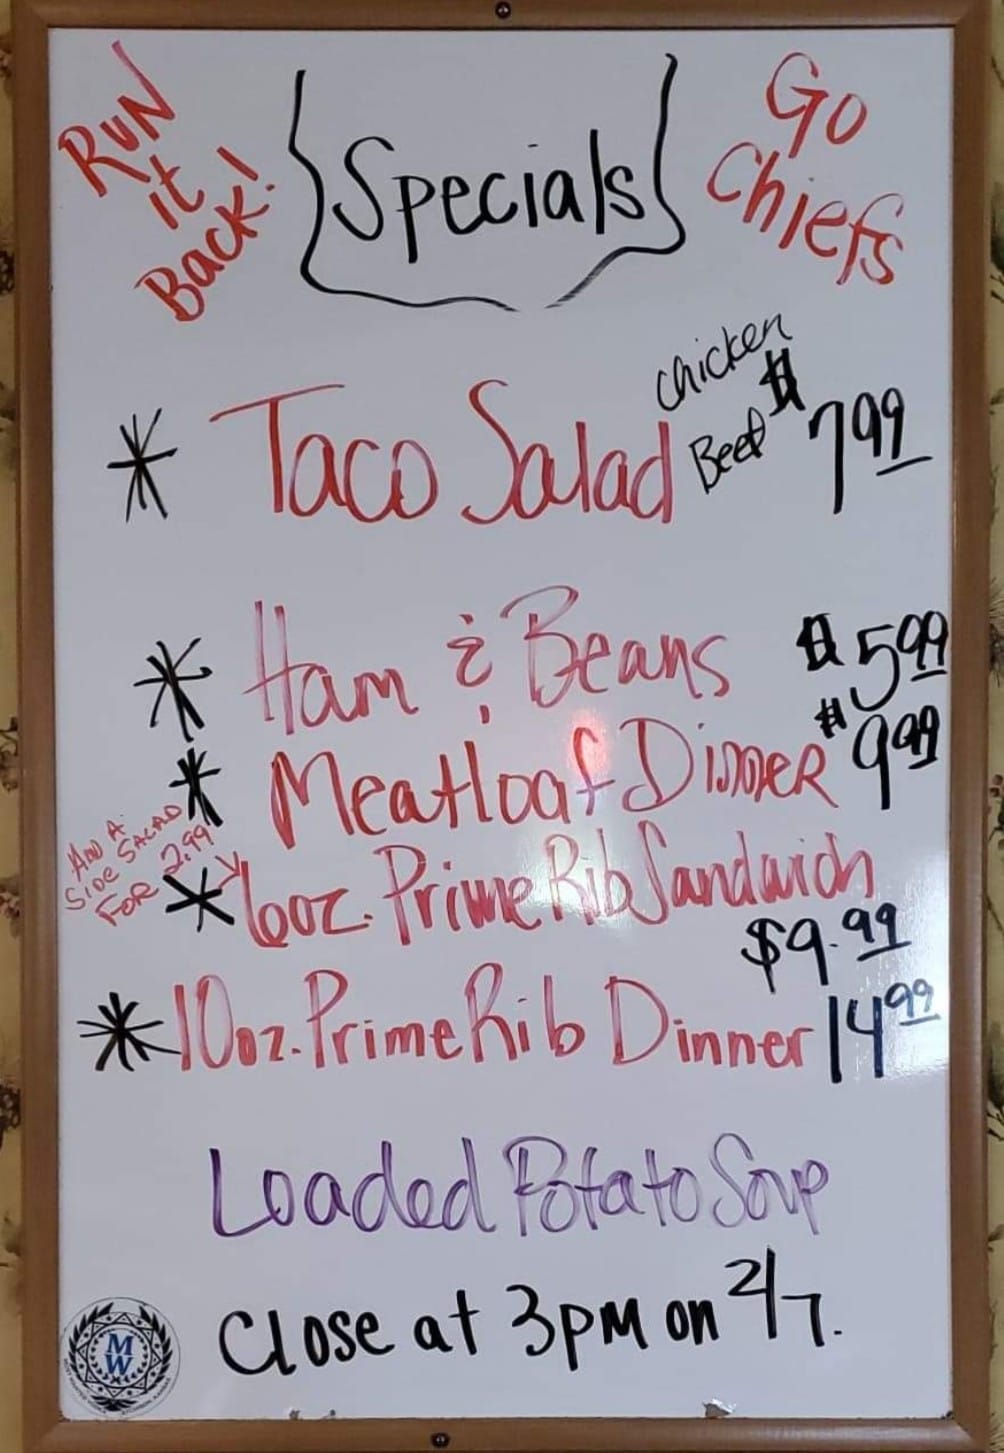 Run
it
Back!
Specials
Go
Chiefs
* Taco Salad Chicken
Beef $7.99
* Ham & Beans $5.99
* Meatloaf Dinner $9.99
Add A
Side Salad
For 2.99
* 6oz. Prime Rib Sandwich
$9.99
* 10oz. Prime Rib Dinner 14.99
Loaded Potato Soup
Close at 3pm on 2/7.
MW